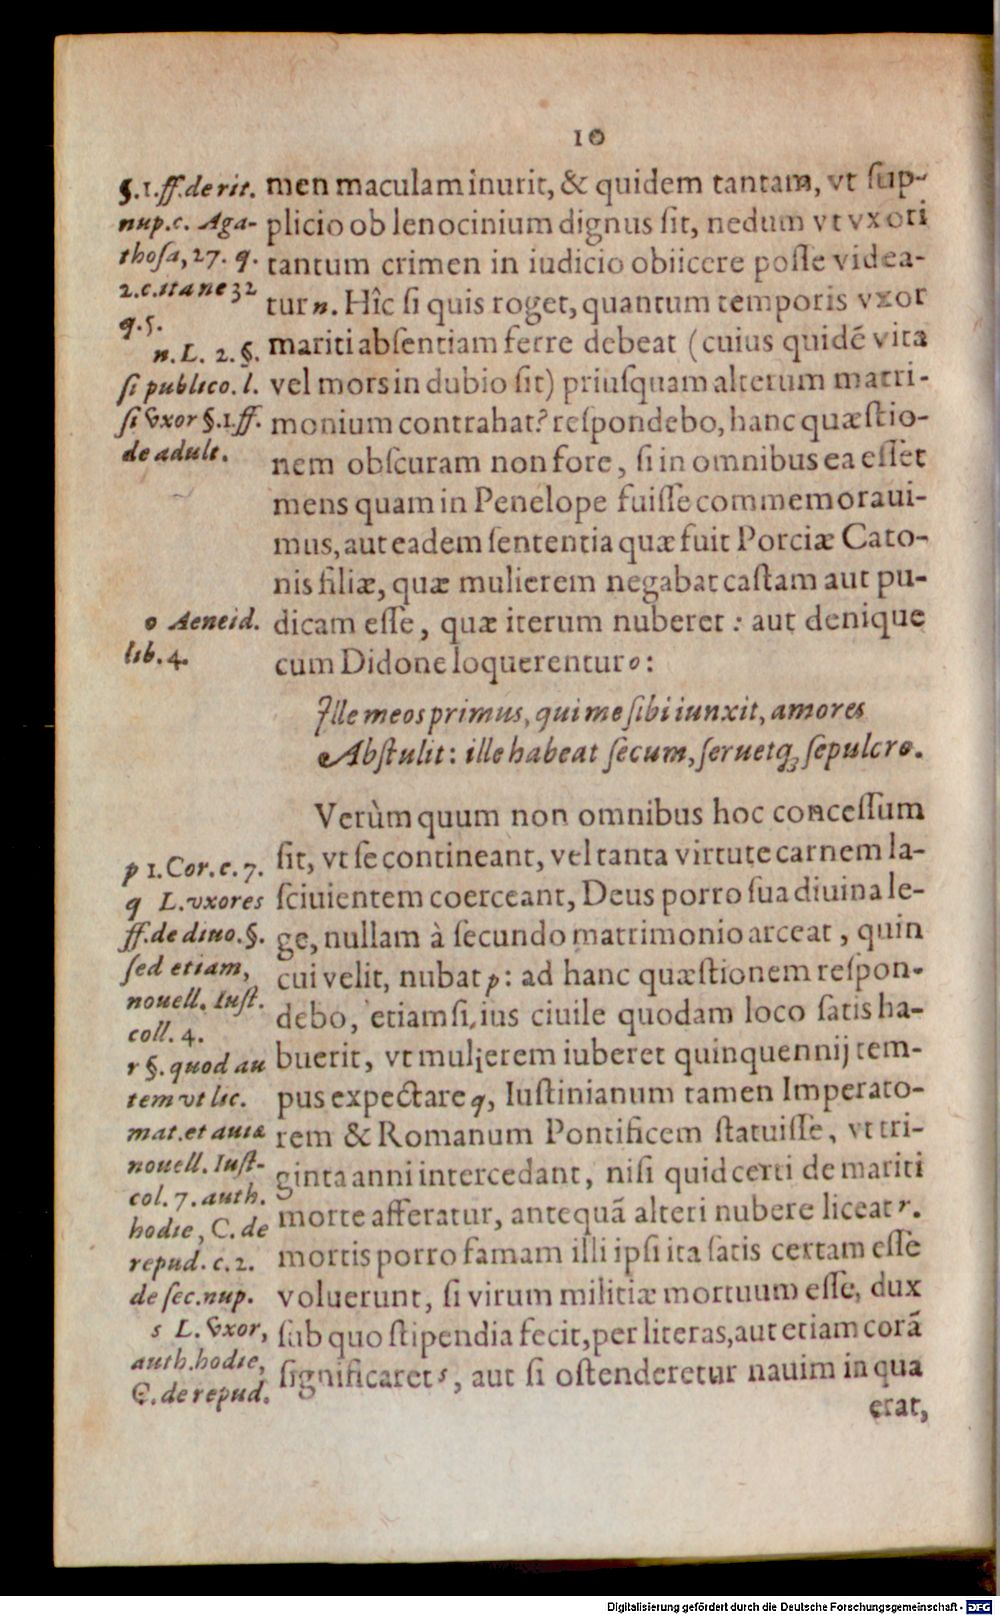 10
§.1.ff.de rit.
nup.c. Aga-
thosa, 27. q.
2.c.si tane 32
q.5.
n. L. 2. §.
si publico. l.
si vxor §.1.ff.
de adult.
men maculam inurit, & quidem tantam, vt sup-
plicio ob lenocinium dignus sit, nedum vt vxori
tantum crimen in iudicio obiicere posse videa-
tur n. Hîc si quis roget, quantum temporis vxor
mariti absentiam ferre debeat (cuius quidē vita
vel mors in dubio sit) priusquam alterum matri-
monium contrahat? respondebo, hanc quæstio-
nem obscuram non fore, si in omnibus ea esset
mens quam in Penelope fuisse commemoraui-
mus, aut eadem sententia quæ fuit Porciæ Cato-
nis filiæ, quæ mulierem negabat castam aut pu-
dicam esse, quæ iterum nuberet: aut denique
cum Didone loquerentur o:
o Aeneid.
lib. 4.
Ille meos primus, qui me sibi iunxit, amores
Abstulit: ille habeat secum, seruetq; sepulcro.
Verùm quum non omnibus hoc concessum
sit, vt se contineant, vel tanta virtute carnem la-
sciuientem coerceant, Deus porro sua diuina le-
ge, nullam à secundo matrimonio arceat, quin
cui velit, nubat p: ad hanc quæstionem respon-
debo, etiamsi ius ciuile quodam loco satis ha-
buerit, vt mulierem iuberet quinquennij tem-
pus expectare q, Iustinianum tamen Imperato-
rem & Romanum Pontificem statuisse, vt tri-
ginta anni intercedant, nisi quid certi de mariti
morte afferatur, antequā alteri nubere liceat r.
mortis porro famam illi ipsi ita satis certam esse
voluerunt, si virum militiæ mortuum esse, dux
sub quo stipendia fecit, per literas, aut etiam corā
significaret s, aut si ostenderetur nauim in qua
erat,
p 1. Cor. c. 7.
q L. vxores
ff. de diuo. §.
sed etiam,
nouell. Iust.
coll. 4.
r §. quod au
tem vt lic.
mat. et auiæ
nouell. Iust-
col. 7. auth.
hodie, C. de
repud. c. 2.
de sec. nup.
s L. vxor,
auth. hodie,
C. de repud.
Digitalisierung gefördert durch die Deutsche Forschungsgemeinschaft - DFG